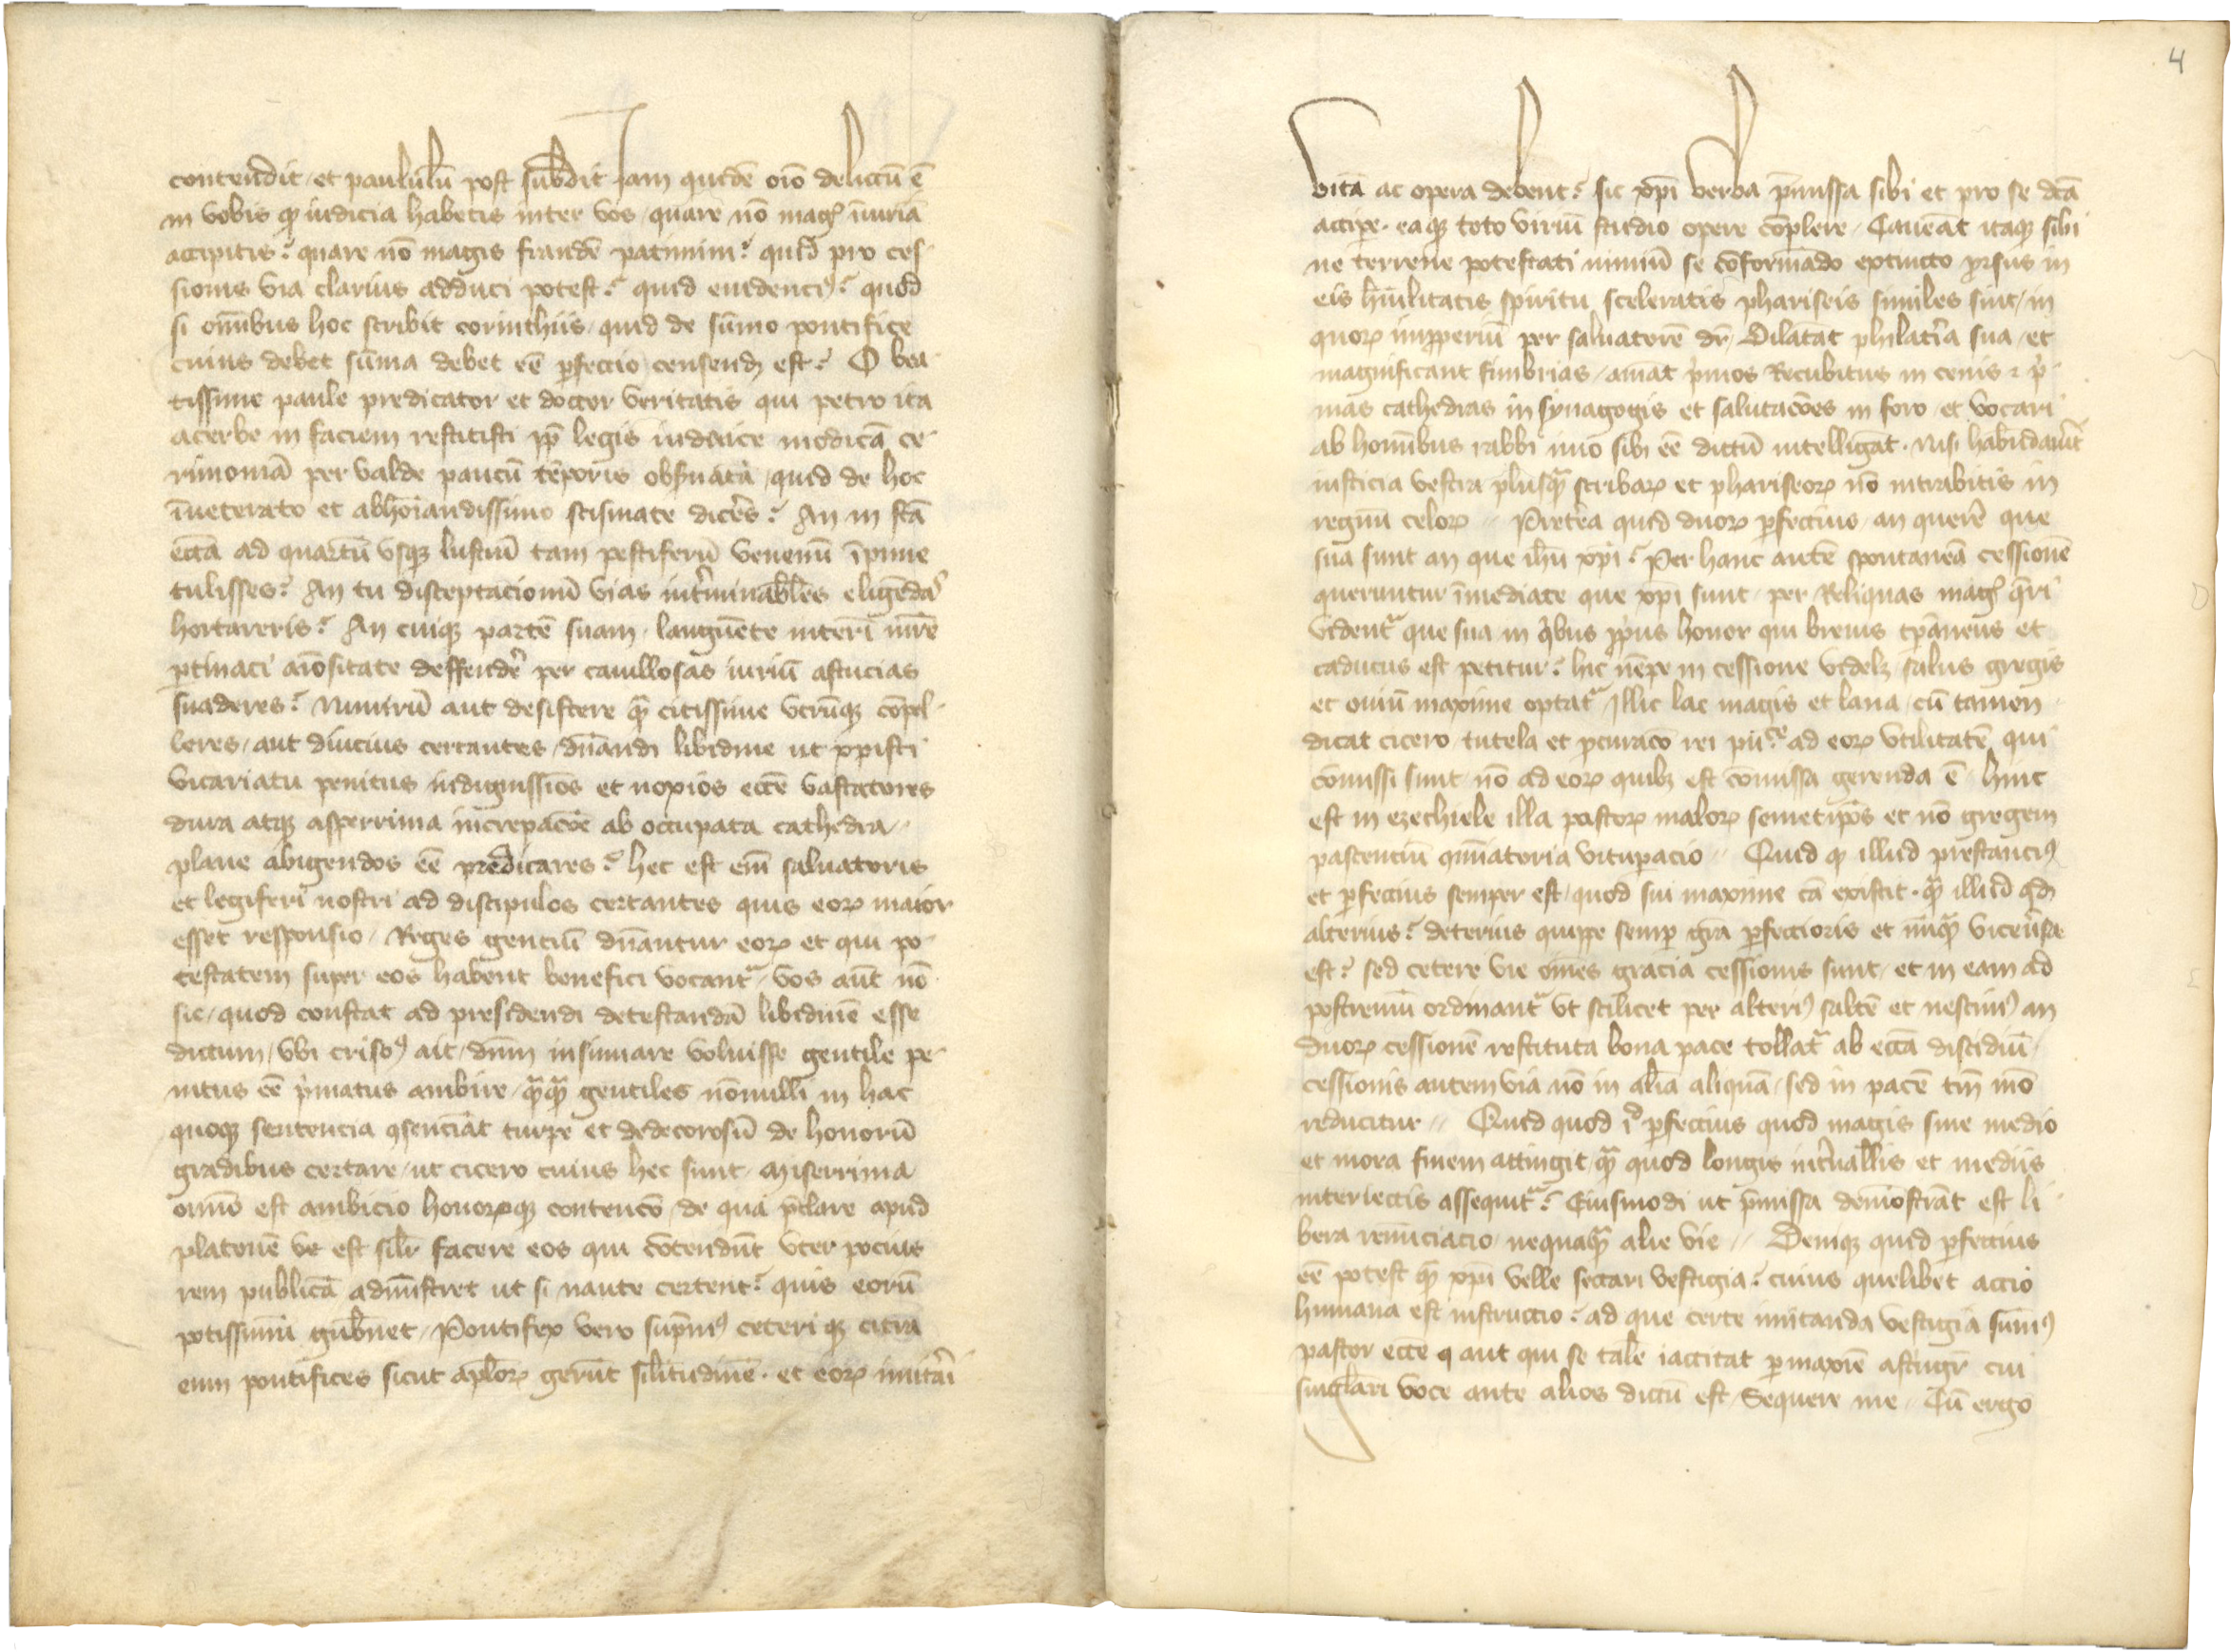 contendit / et paululū post subdit Jam quidē oīo delictū ē
in vobis qꝫ iudicia habetis inter vos / quare nō magꝰ iniuriā
accipitis? quare nō magis fraudē patimini? quid pro ces-
sionis via clarius adduci potest? quid euidenciꝰ? quod
si omībus hoc scribit corinthiis / quid de sūmo pontifice
cuius debet sūma debet eē ꝑfectio censendꝫ est? O bea-
tissime paule predicator et doctor veritatis qui petro ita
acerbe in faciem restitisti ꝓpt̄ legis iudaice modicā ce-
rimoniā per valde paucū tēporis obseruatā / quid de hoc
īueterato et abhoīandissimo scismate diceres? An in sctā
ecctā ad quartū vsqꝫ lustrū tam pestiferū venenū īpune
tulisses? An tu disceptacionū vias int̄minabłes eligēdas
hortareris? An cuiqꝫ partē suam / languēte interī mr̄e
ꝑtinaci aīositate deffendēr per cauillosas iuriū astucias
suaderes? Nimirū aut desistere qꝫ citissime vtrūqꝫ cōpel-
leres / aut diucius certantes / dn̄andi libidine ut xp̄isti
vicariatu penitus indignissīos et noxios ecctē vastatores
dura atqꝫ asperrima increpacōe ab occupata cathedra //
plane abigendos eē predicares? hec est enī saluatoris
et legiferi nostri ad discipulos certantes quis eoꝝ maior
esset responsio / Reges genciū dn̄antur eoꝝ et qui po-
testatem super eos habent benefici vocantᷣ / vos aūt nō
sic / quod constat ad presidendi detestandā libidinē esse
dictum / vbi crisoꝰ ait / dn̄m insinuare voluisse gentile pe-
nitus eē p̄matus ambire / qᷓqᷓ gentiles nōnulli in hac
quoqꝫ sentencia ꝯsenciāt turpe et dedecorosū de honorū
gradibus certare / ut cicero cuius hec sunt / Miserrima
omīo est ambicio honoꝝqꝫ contencō / de qua p̄clare apud
platonē ve est silr̄ facere eos qui cōtendūt vter pocius
rem publicā admīstret ut si naute certent? quis eorū
potissimū gubn̄et / Pontifex vero sup̄mꝰ ceteri qꝫ citra
eum pontifices sicut apłoꝝ gerūt silitudinē · et eoꝝ imitari
4
vitā ac opera debent? sic xp̄i verba p̄missa sibi et pro se dc̄ā
accipe · eaqꝫ toto viriū studio opere cōplere / Caueāt itaqꝫ sibi
ne terrene potestati nimiū se cōformādo extincto ꝓrsus in
eis hūilitatis spiritu sceleratis phariseis similes sint / in
quoꝝ impperiū per saluatorē dr̄ / Dilatāt philatr̄ia sua / et
magnificant fimbrias / amāt p̄mos Recubitus in cenis ⁊ p̄-
mas cathedras in synagogis et salutacōes in foro / et vocari
ab homībus rabbi imo sibi eē dictū intelligāt · Nisi habūdauīt
iusticia vestra plusqᷓ scribaꝝ et phariseoꝝ nō intrabitis in
regnū celoꝝ // Pretērea quid duoꝝ ꝑfectius / an querē que
sua sunt an que ih̄u xp̄i? Per hanc autē spontaneā cessionē
queruntur īmediate que xp̄i sunt / per Reliquas magꝰ q̄ri
videntᷣ que sua / in qͥbus ꝓpͥus honor qui breuis tp̄aneus et
caducus est petitur? hic nēpe in cessione videlꝫ / salus gregis
et ouiū maxime optatᷣ / Illic lac magis et lana / cū tamen
dicat cicero / tutela et ꝓcuracō rei pu̅ce ad eoꝝ vtilitatē qui
cōmissi sunt / nō ad eoꝝ quibꝫ est cōmissa gerenda ē / hinc
est in ezechiele illa pastoꝝ maloꝝ semetip̄os et nō gregem
pascenciū qm̄iatoria vituperacio // Quid qꝫ illud prestanciꝰ
et ꝑfectius semper est / quod sui maxime cā existit · qᷓ illud qdꝫ
alterius? deterius quippe semꝑ grā ꝑfectioris et nūqᷓ viceu̅sa
est? sed cetere vie om̄es gracia cessionis sunt / et in eam ad
postremū ordinantᷣ vt scilicet per alteriꝰ saltē et nescimꝰ an
duoꝝ cessionē restituta bona pace tollatᷣ ab ecctā discidiū /
cessionis autem via nō in aliā aliquā / sed in pacē tm̄ īmō
reducitur // Quid quod īᵒ ꝑfectius quod magis sine medio
et mora finem attingit / qᷓ quod longis intͥuallis et mediis
interiectis assequitᷣ? Eiusmodi ut p̄missa demōstrāt est li-
bera renūciacio / nequaqᷓ alie vie // Deniqꝫ quid ꝑfectius
eē potest qꝫ xp̄i velle sectari vestigia? cuius quelibet actio
humana est instructio? ad que certe imitanda vestigia sūmꝰ
pastor ecctē q aut qui se talē iactitat ꝑmaxīe astrīgr̄ cui
singłari voce ante alios dictū est / Sequere me // Cū ergo